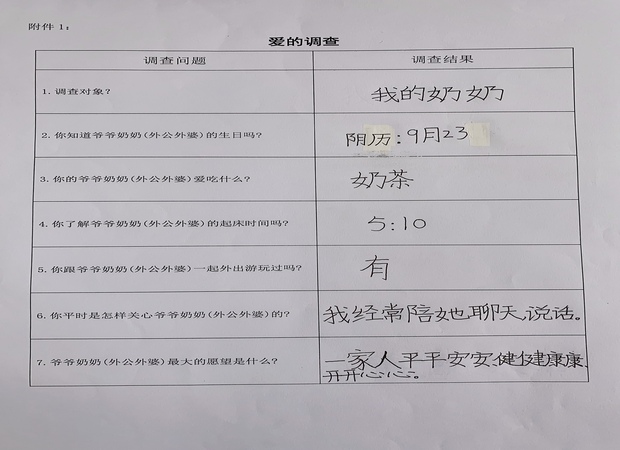 附件1：
爱的调查
调查问题 调查结果
1. 调查对象？ 我的奶奶
2. 你知道爷爷奶奶(外公外婆)的生日吗？ 阴历：9月23
3. 你的爷爷奶奶(外公外婆)爱吃什么？ 奶茶
4. 你了解爷爷奶奶(外公外婆)的起床时间吗？ 5:10
5. 你跟爷爷奶奶(外公外婆)一起外出游玩过吗？ 有
6. 你平时是怎样关心爷爷奶奶(外公外婆)的？ 我经常陪她聊天、说话。
7. 爷爷奶奶(外公外婆)最大的愿望是什么？ 一家人平平安安、健健康康、
开开心心。